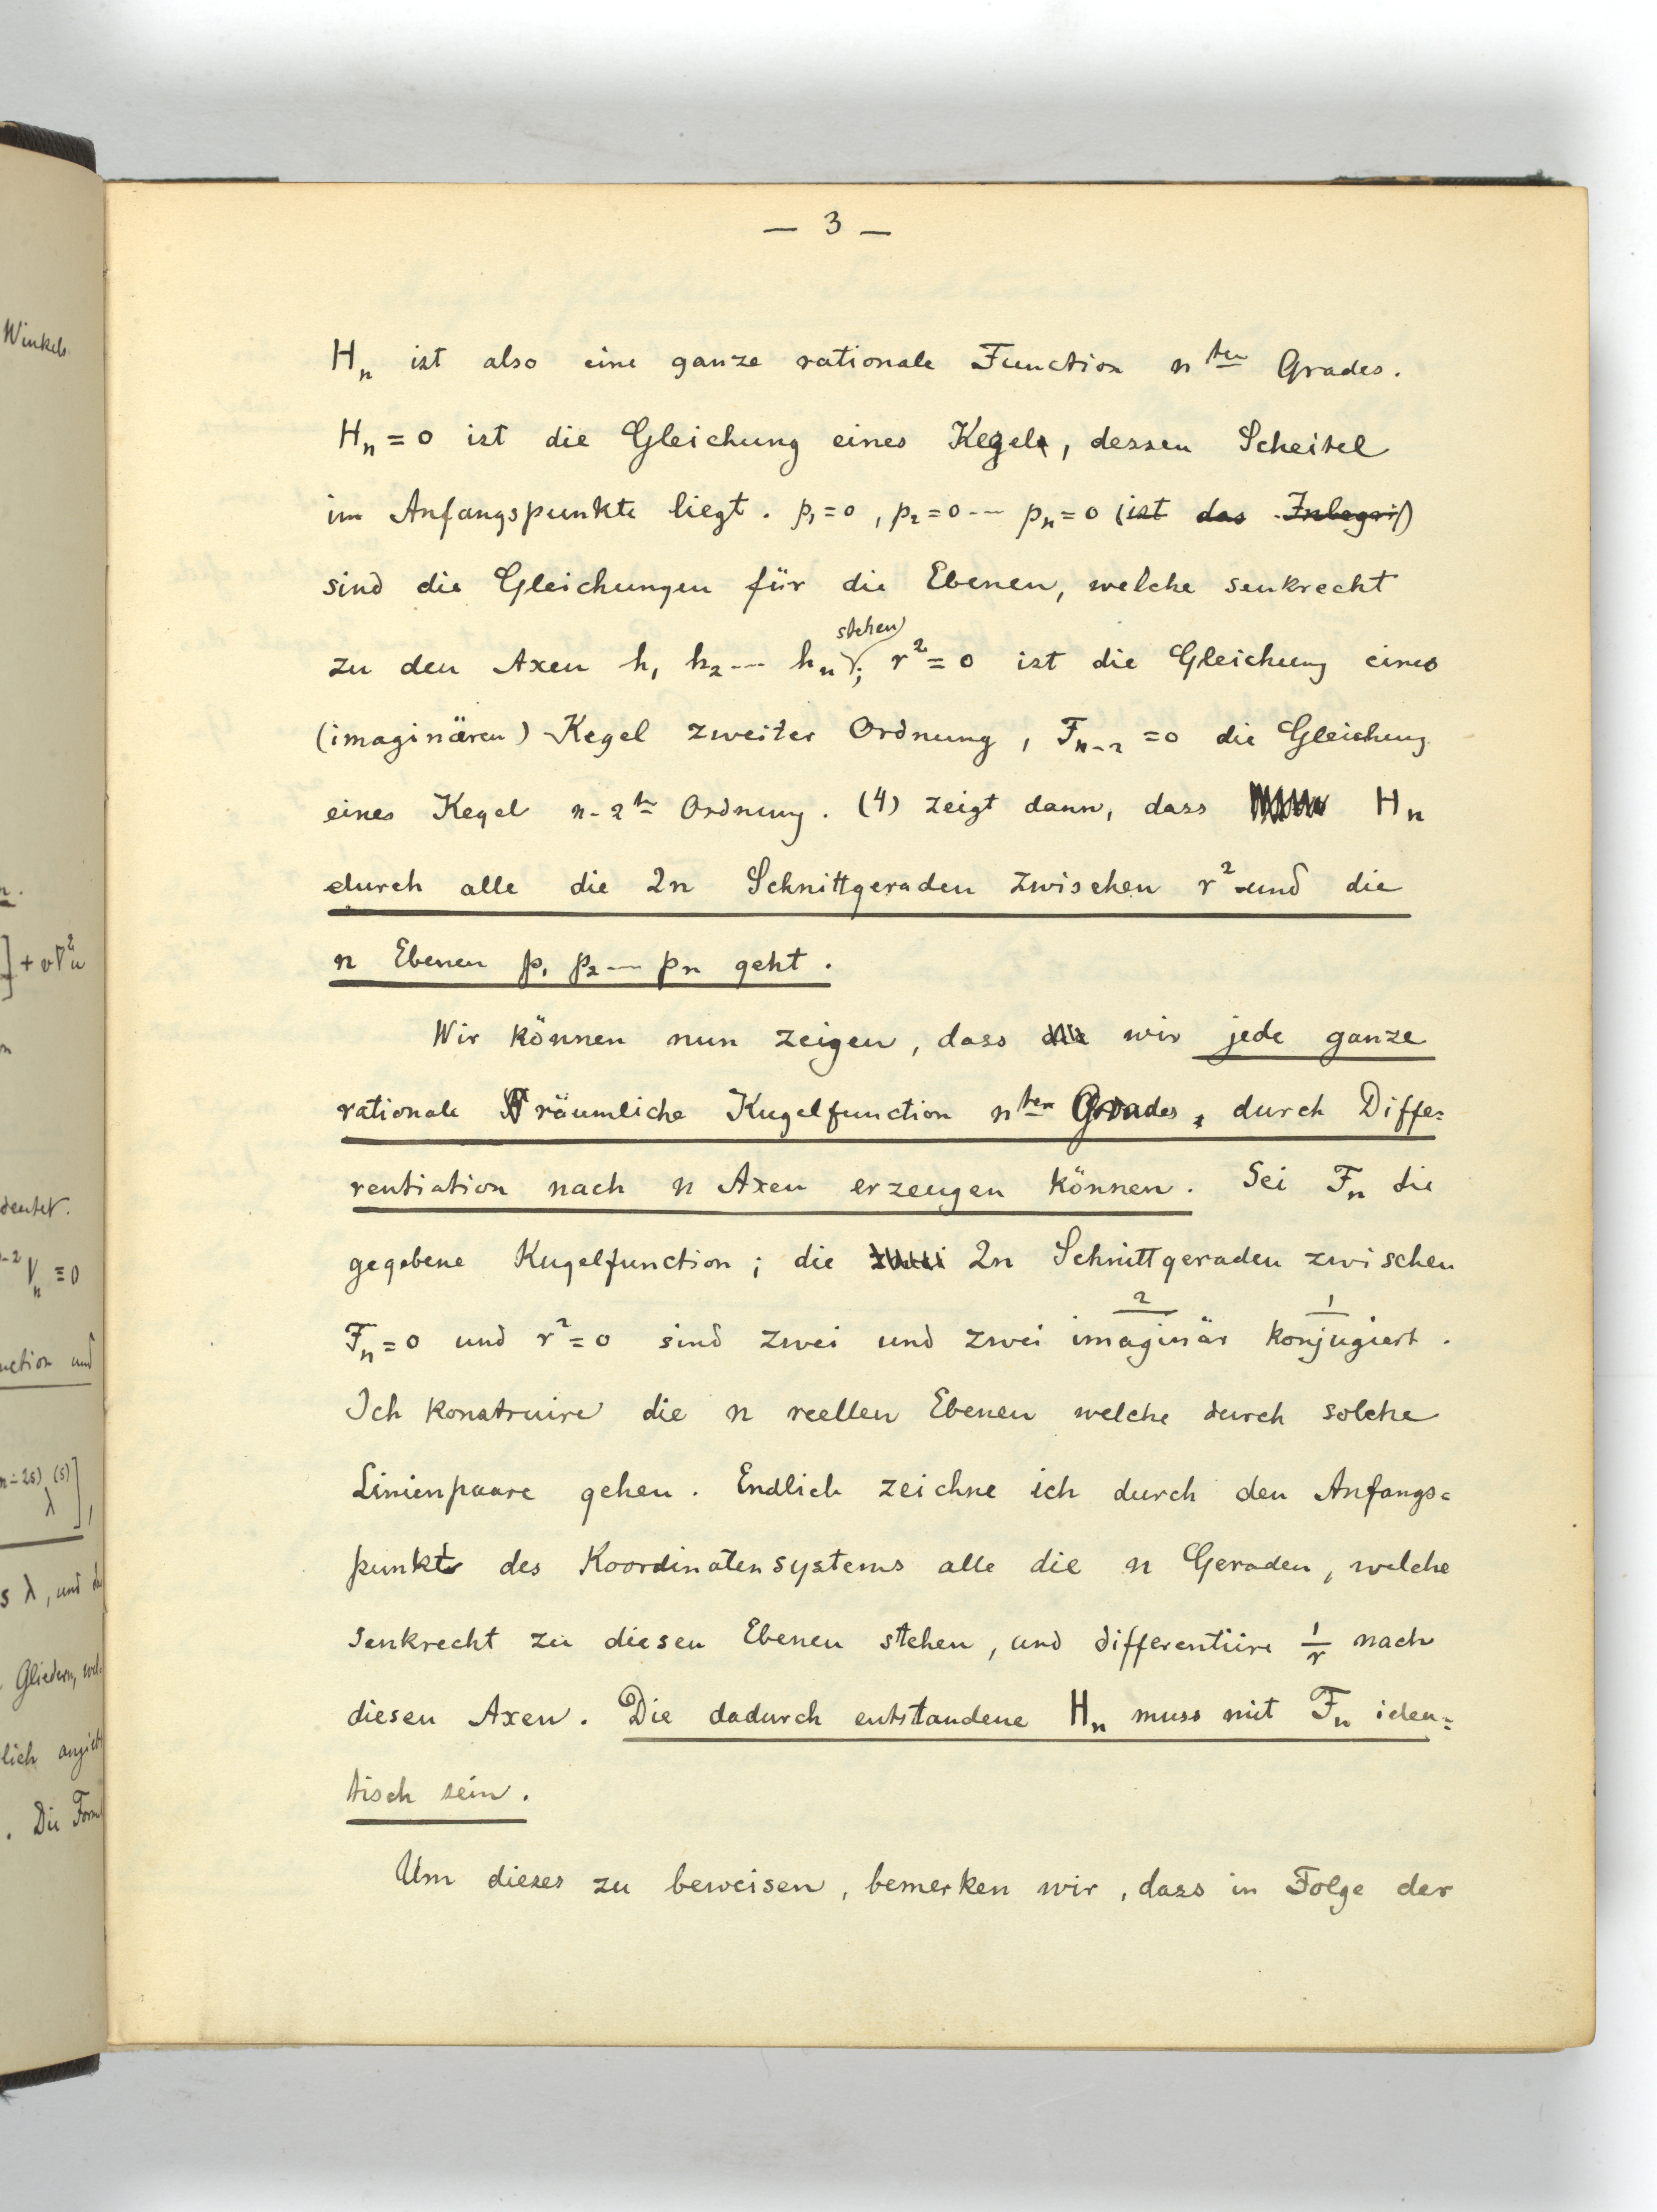 — 3 —
Hₙ ist also eine ganze rationale Function n ten Grades.
Hₙ = 0 ist die Gleichung eines Kegels, dessen Scheitel
im Anfangspunkte liegt. p₁=0, p₂=0 --- pₙ=0 (ist das Inbegrif)
sind die Gleichungen für die Ebenen, welche senkrecht
zu den Axen h₁ h₂ --- hₙ stehen; r²=0 ist die Gleichung eines
(imaginären) Kegel zweiter Ordnung, Fₙ₋₂ =0 die Gleichung
eines Kegel n-2 ter Ordnung. (4) zeigt dann, dass Hₙ
durch alle die 2n Schnittgeraden zwischen r² und die
n Ebenen p₁ p₂ --- pₙ geht.
Wir können nun zeigen, dass wir jede ganze
rationale räumliche Kugelfunction n ten Grades, durch Diffe=
rentiation nach n Axen erzeugen können. Sei Fₙ die
gegebene Kugelfunction; die zwei 2n Schnittgeraden zwischen
Fₙ=0 und r²=0 sind zwei und zwei imaginär 2 konjugiert 1.
Ich konstruire die n reellen Ebenen welche durch solche
Linienpaare gehen. Endlich zeichne ich durch den Anfangs=
punkt des Koordinatensystems alle die n Geraden, welche
senkrecht zu diesen Ebenen stehen, und differentiire 1/r nach
diesen Axen. Die dadurch entstandene Hₙ muss mit Fₙ iden=
tisch sein.
Um dieses zu beweisen, bemerken wir, dass in Folge der
Winkels.
n.
] + v∇²u
n
deutet.
n-2 Vₙ ≡ 0
nction und
n-2s) (s) λ ],
s λ, und
Gliedern,
lich
. Die